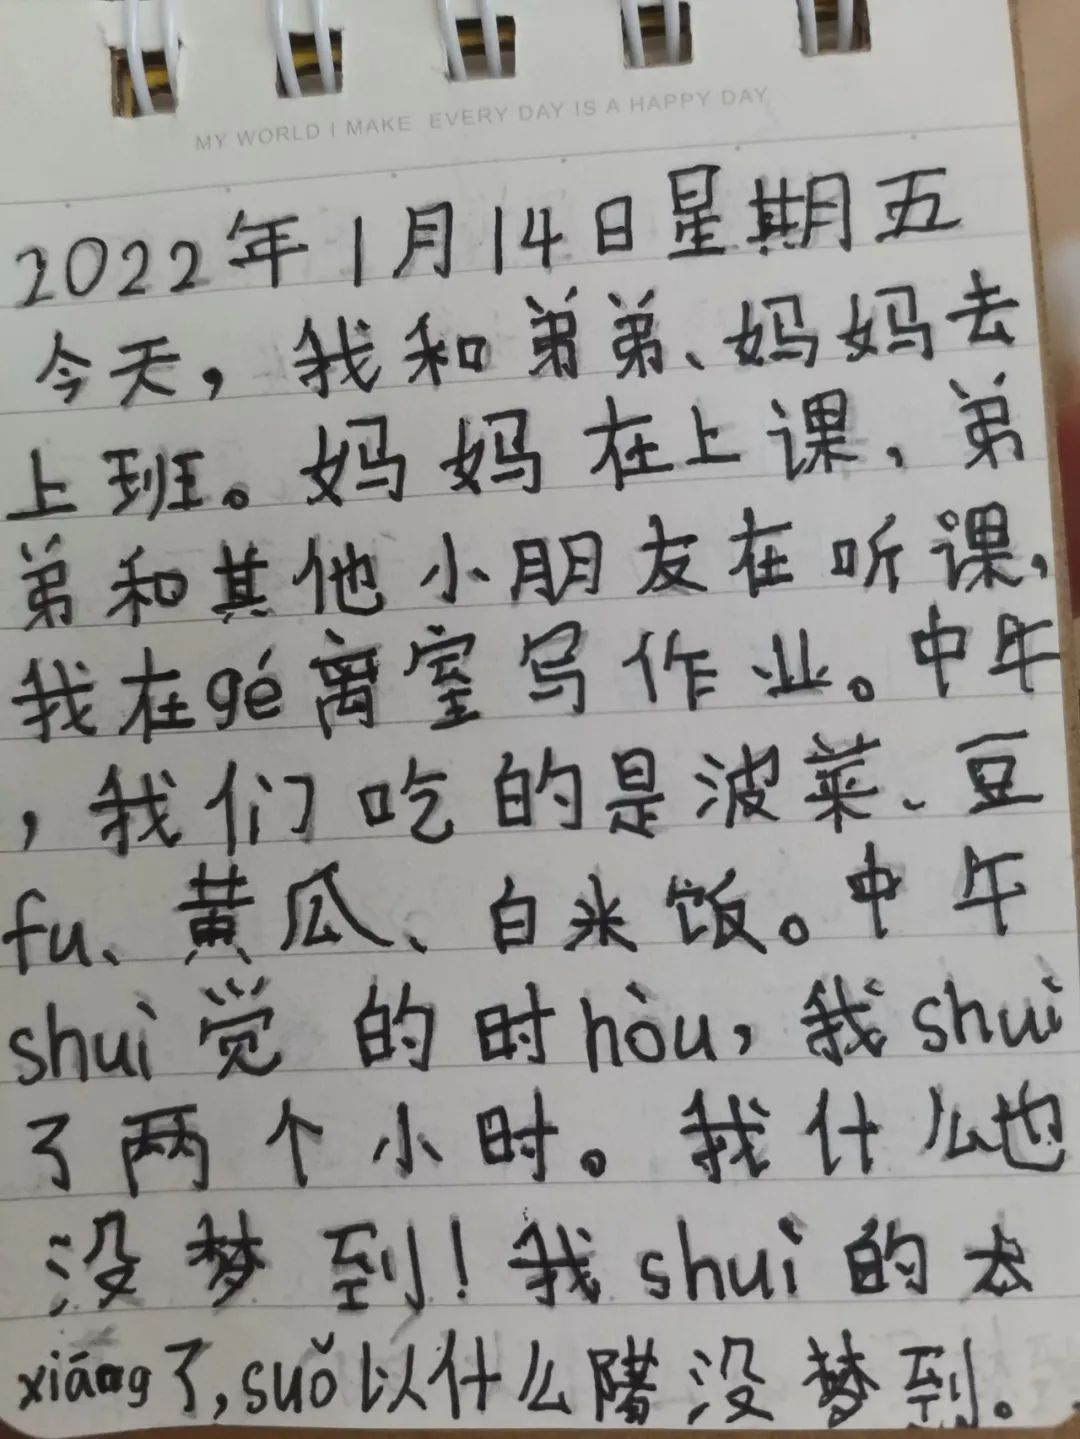 MY WORLD I MAKE EVERY DAY IS A HAPPY DAY
2022年1月14日星期五
今天，我和弟弟、妈妈去
上班。妈妈在上课，弟
弟和其他小朋友在听课，
我在gé离室写作业。中午
，我们吃的是波菜、豆
fu、黄瓜、白米饭。中午
shuì觉的时hòu，我shuì
了两个小时。我什么也
没梦到！我shuì的太
xiáng了，suǒ以什么没梦到。